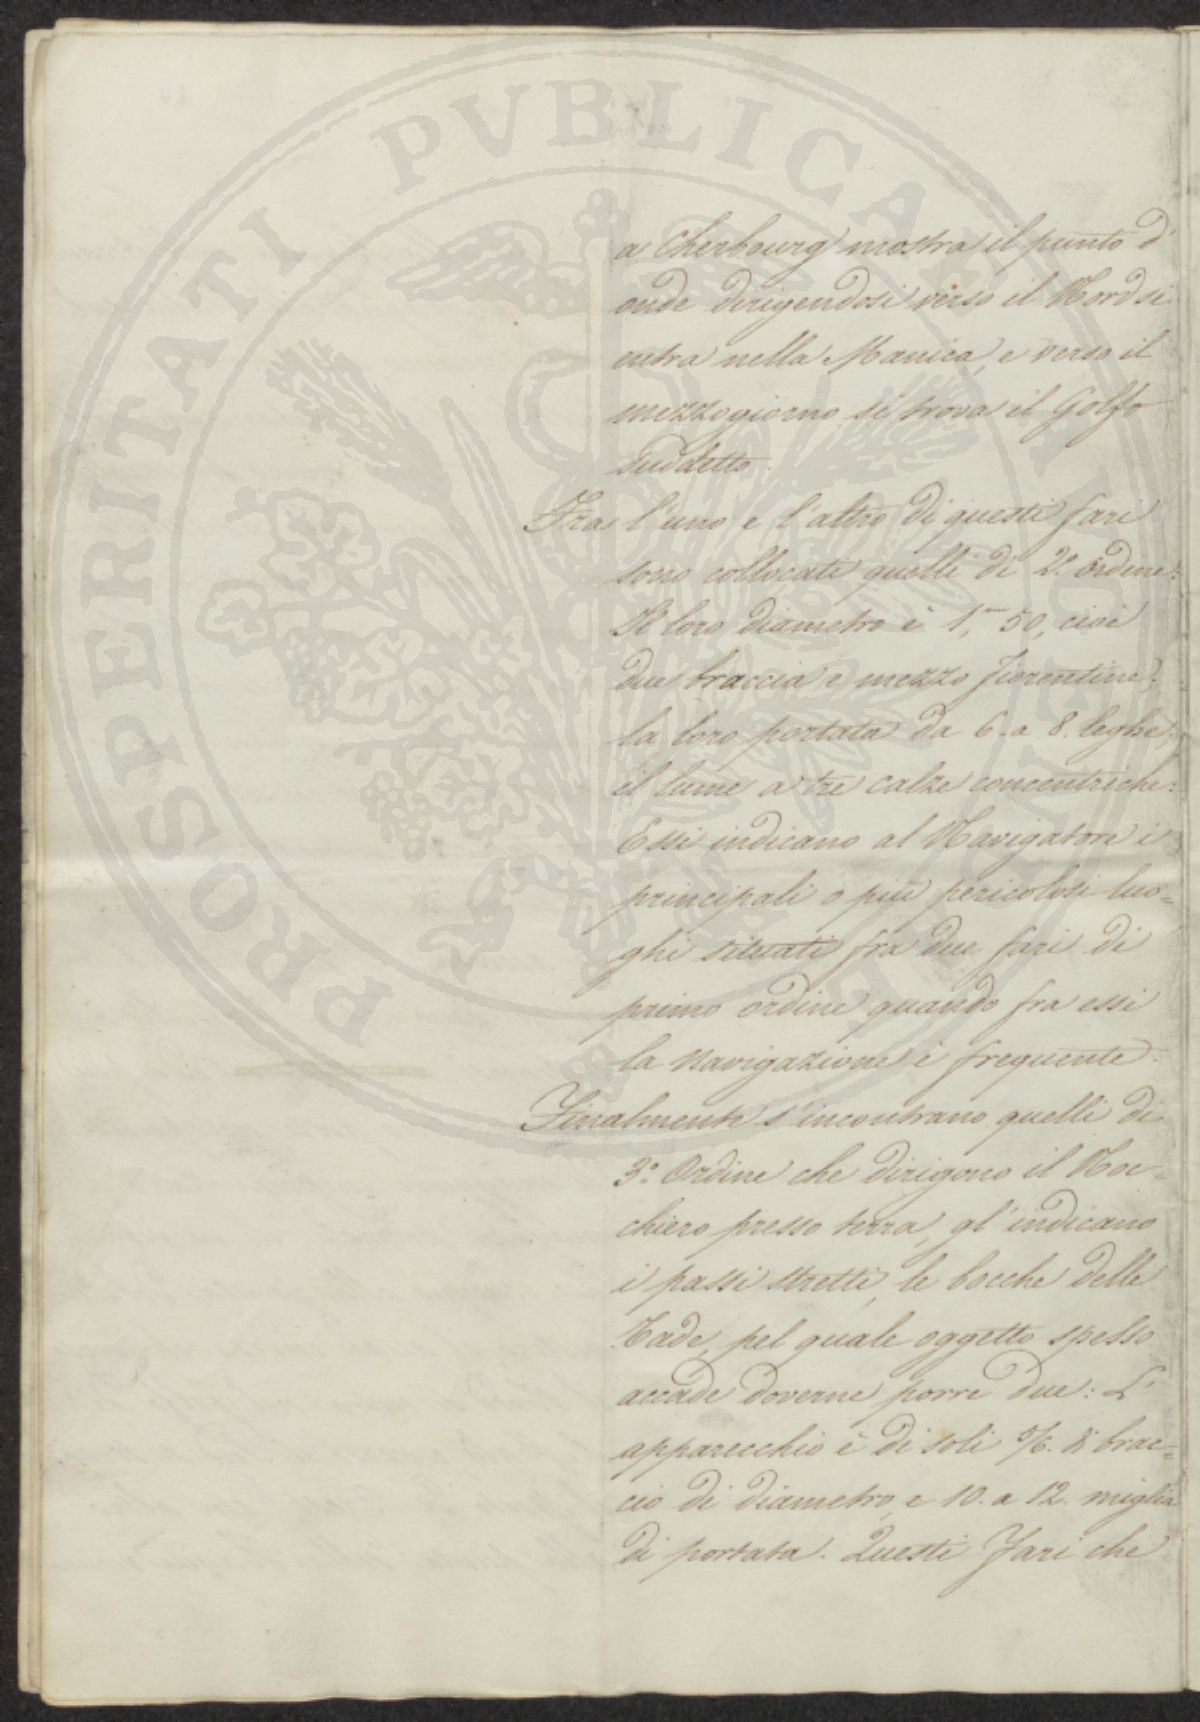 PROSPERITATI PVBLICAE AVGENDAE
a Cherbourg mostra il punto d'
onde dirigendosi verso il Nord si
entra nella Manica, e verso il
mezzogiorno si trova il Golfo
suddetto.
Fra l'uno e l'altro di questi fari
sono collocati quelli di 2.º ordine:
Il loro diametro è 1,ᵐ 50, cioè
due braccia e mezzo fiorentine;
la loro portata da 6. a 8. leghe;
il lume a tre calze concentriche:
Essi indicano al Navigatore i
principali o più pericolosi luo=
ghi situati fra due fari di
primo ordine quando fra essi
la navigazione è frequente.
Finalmente s'incontrano quelli di
3.º Ordine che dirigono il Noc=
chiero presso terra, gl'indicano
i passi stretti, le bocche delle
Rade, pel quale oggetto spesso
accade doverne porre due: L'
apparecchio è di soli di brac=
cio di diametro, e 10. a 12. miglia
di portata. Questi Fari che